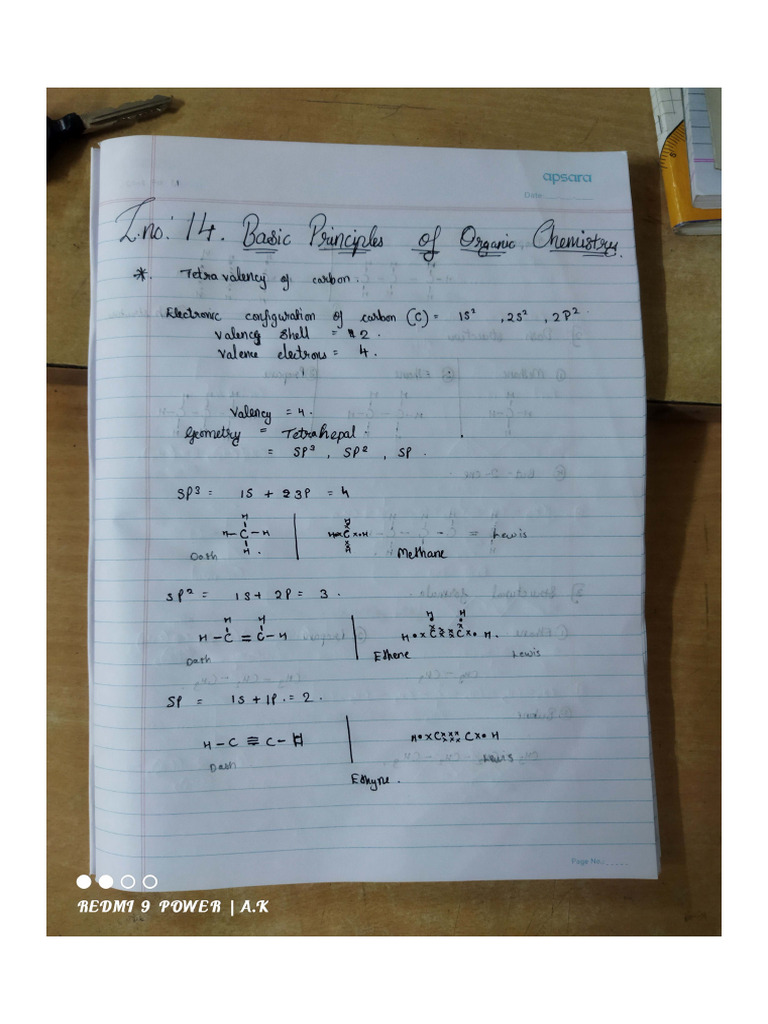 apsara
Date
L.no: 14. Basic Principles of Organic Chemistry.
*. Tetravalency of carbon.
Electronic configuration of carbon (C) = 1S² , 2S² , 2P².
Valency shell = 2.
Valene electrons = 4.
Valency = 4.
Geometry = Tetrahepal.
= SP³ , SP² , SP.
SP³ = 1S + 3P = 4
H
H - C - H
H
Dash
H
H•×C×•H
H
Methane
SP² = 1S + 2P = 3.
H H
H - C = C - H
Dash
H H
H•×C××××C×•H.
Ethene
Lewis
SP = 1S + 1P. = 2.
H - C ≡ C - H
Dash
H•×C××××××C×•H
Lewis
Ethyne.
Page No.:
REDMI 9 POWER | A.K